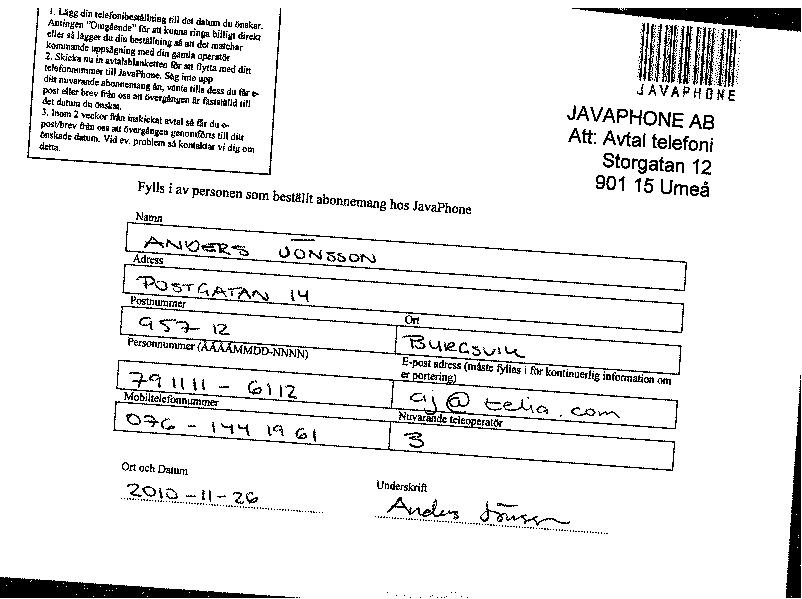 1. Lägg din telefonibeställning till det datum du önskar.
Antingen "Omgående" för att kunna ringa billigt direkt
eller så lägger du din beställning så att det matchar
kommande uppsägning med din gamla operatör
2. Skicka nu in avtalsblanketten för att flytta med ditt
telefonnummer till JavaPhone. Säg inte upp
ditt nuvarande abonnemang än, vänta tills dess du får e-
post eller brev från oss att övergången är fastställd till
det datum du önskat.
3. Inom 2 veckor från inskickat avtal så får du e-
post/brev från oss att övergången genomförts till ditt
önskade datum. Vid ev. problem så kontaktar vi dig om
detta.
JAVAPHONE
JAVAPHONE AB
Att: Avtal telefoni
Storgatan 12
901 15 Umeå
Fylls i av personen som beställt abonnemang hos JavaPhone
Namn
ANDERS JONSSON
Adress
POSTGATAN 14
Postnummer
Ort
957 12
BURGSVIK
Personnummer (ÅÅÅÅMMDD-NNNN)
E-post adress (måste fylles i för kontinuerlig information om
er portering)
791111-6112
aj@telia.com
Mobiltelefonnummer
Nuvarande teleoperatör
076-144 19 61
3
Ort och Datum
Underskrift
2010-11-26
Anders Jönsson